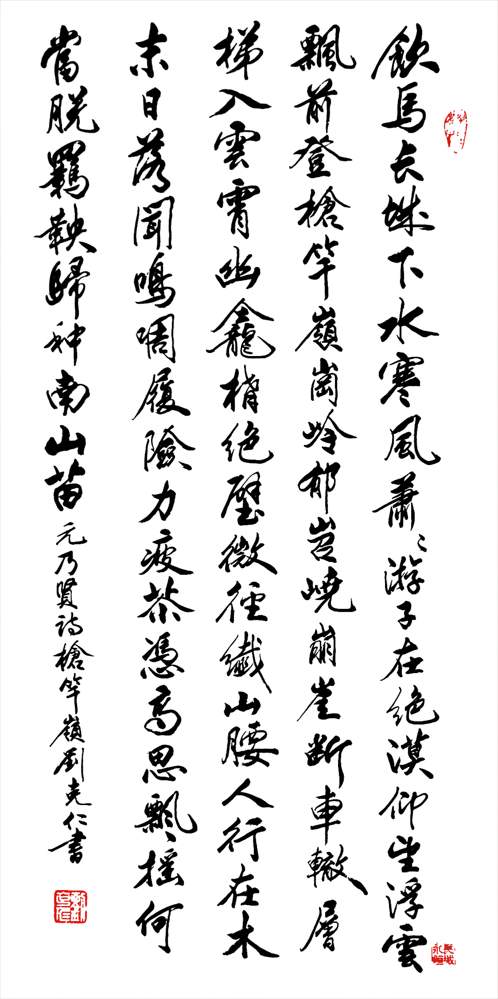 飲馬长城下水寒風蕭〻游子在绝漠仰望浮雲
飄前登槍竿嶺崗岭郁岧嶢崩崖斷車轍層
梯入雲霄幽龕構绝壁微徑纖山腰人行在木
末日落聞鳴啁履險力疲苶憑高思飄摇何
當脱羈鞅歸种南山苗 元乃賢詩槍竿嶺劉克仁書